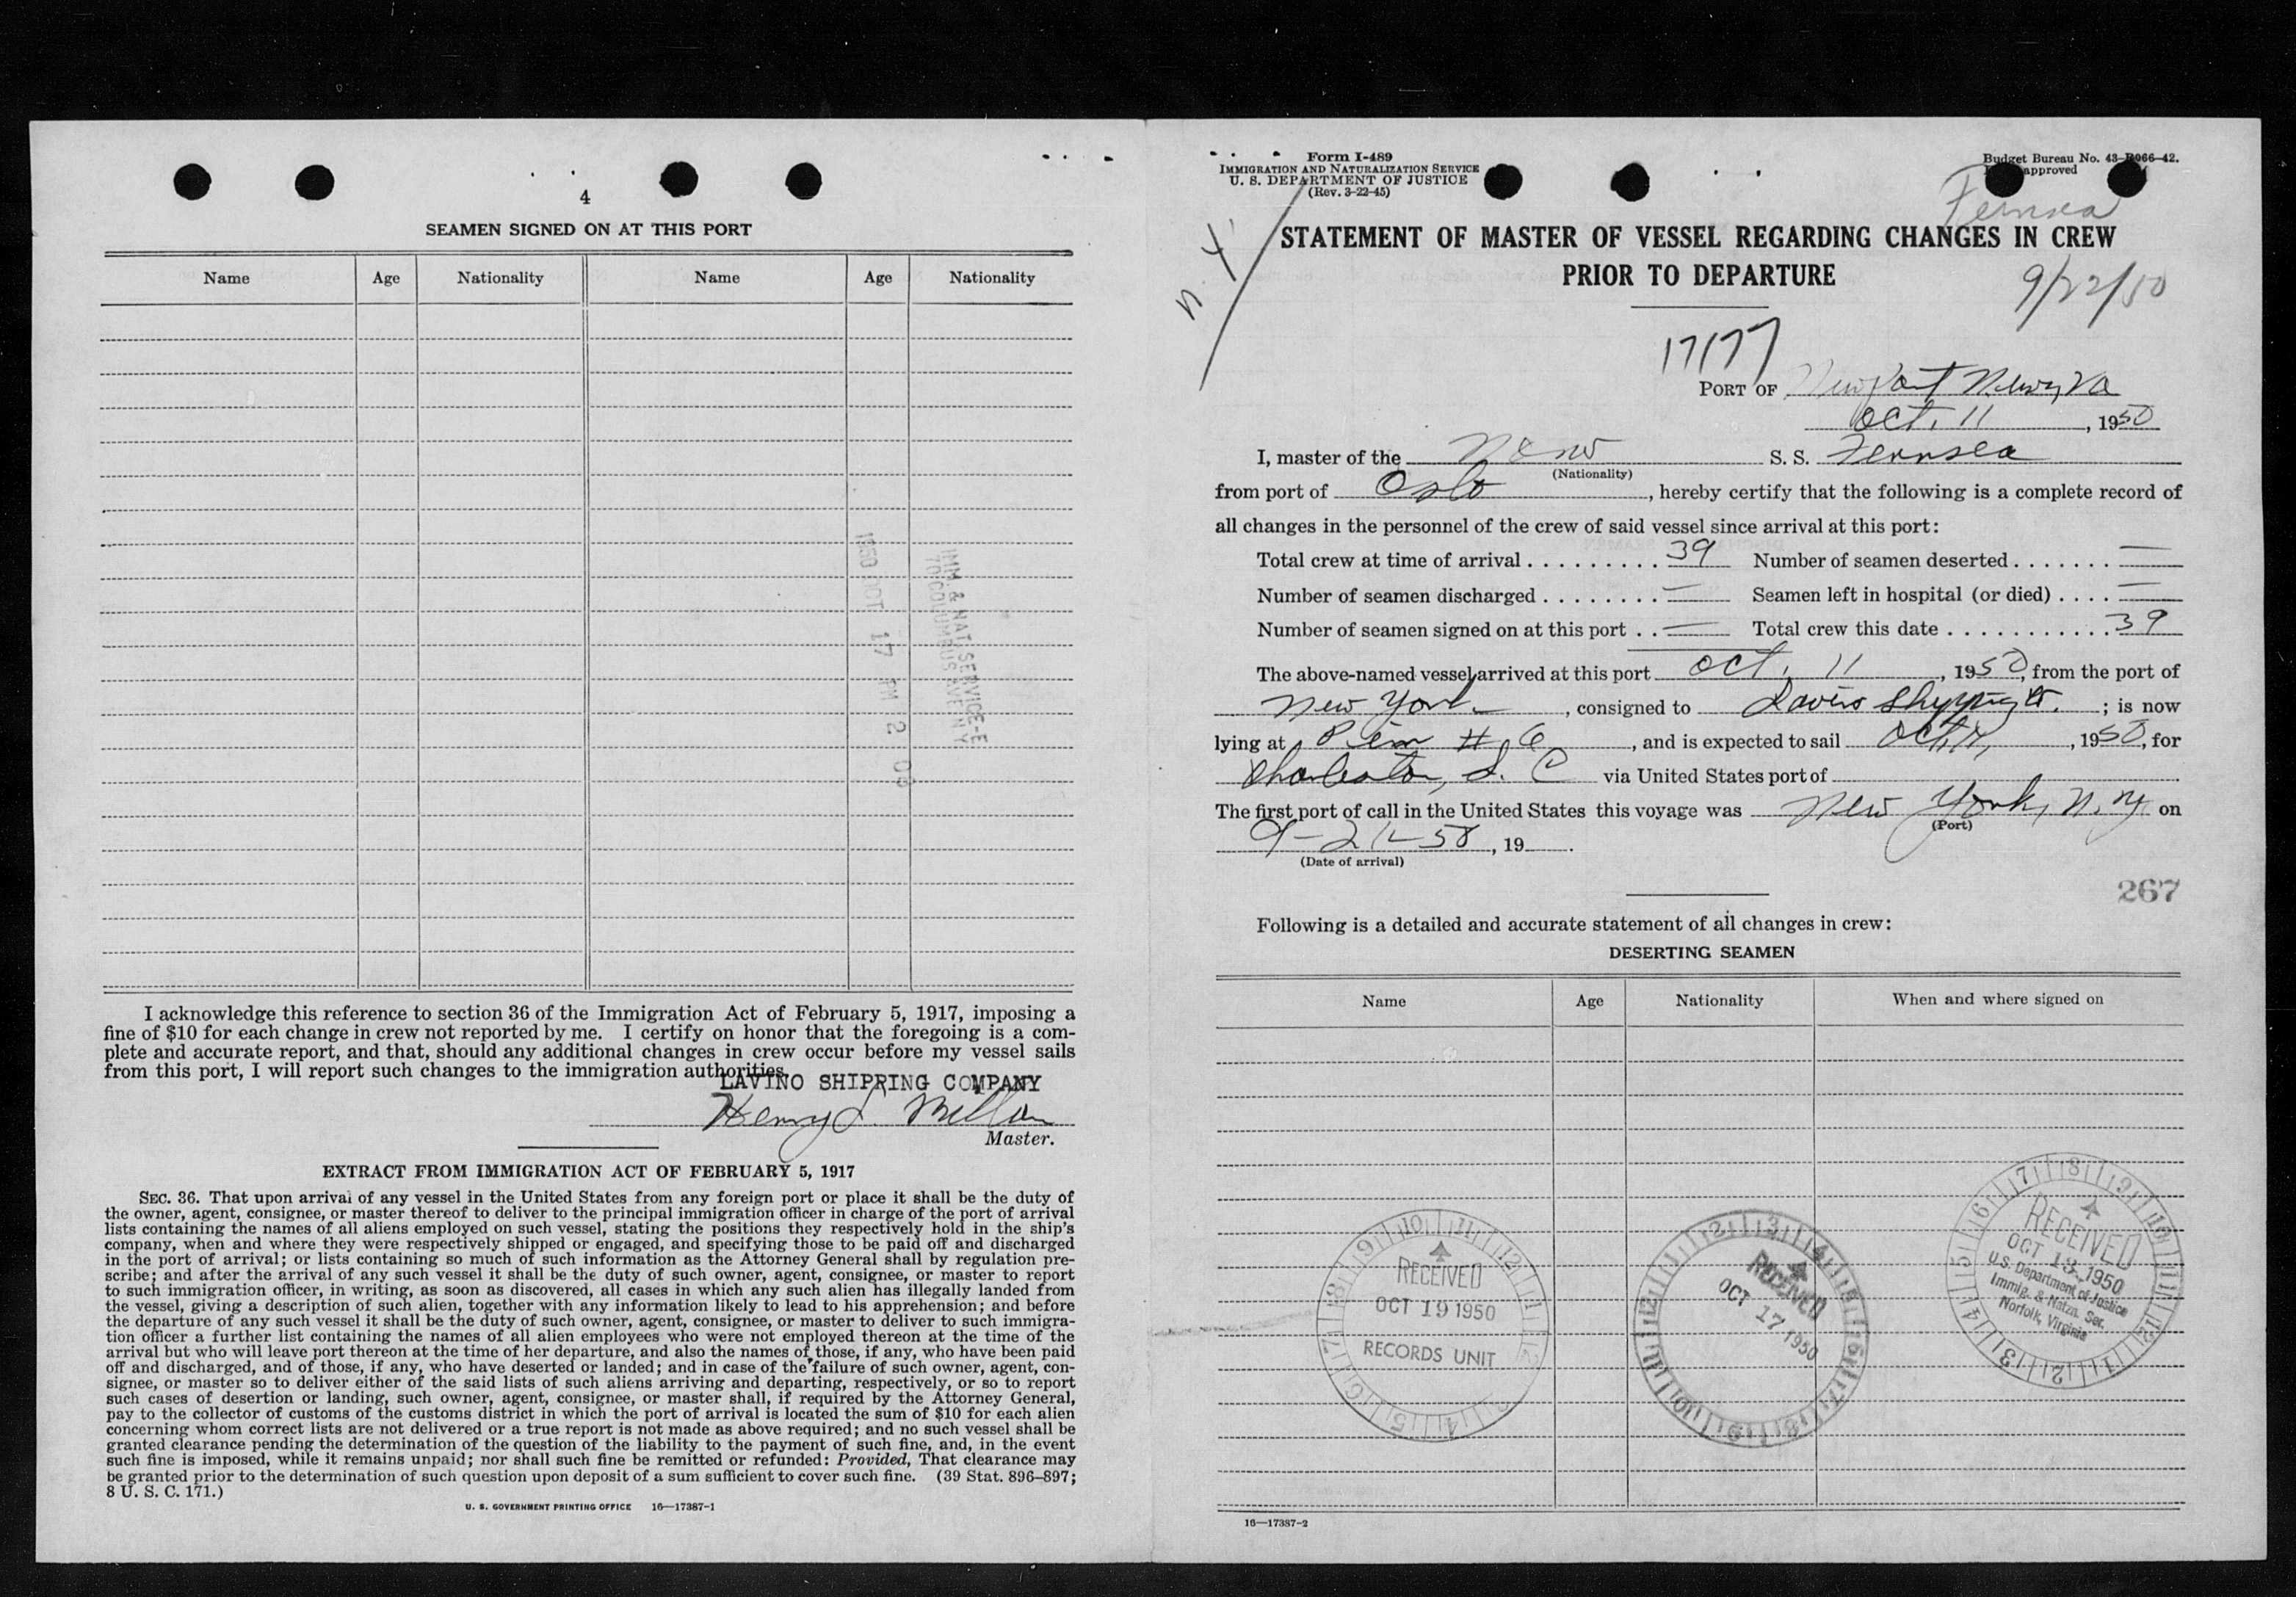 4
SEAMEN SIGNED ON AT THIS PORT
Name Age Nationality Name Age Nationality
IMM. & NAT. SERVICE-E
70 COLUMBUS AVE N Y
1950 OCT 17 PM 2 03
I acknowledge this reference to section 36 of the Immigration Act of February 5, 1917, imposing a
fine of $10 for each change in crew not reported by me. I certify on honor that the foregoing is a com-
plete and accurate report, and that, should any additional changes in crew occur before my vessel sails
from this port, I will report such changes to the immigration authorities.
LAVINO SHIPPING COMPANY
Henry L.
Master.
EXTRACT FROM IMMIGRATION ACT OF FEBRUARY 5, 1917
SEC. 36. That upon arrival of any vessel in the United States from any foreign port or place it shall be the duty of
the owner, agent, consignee, or master thereof to deliver to the principal immigration officer in charge of the port of arrival
lists containing the names of all aliens employed on such vessel, stating the positions they respectively hold in the ship's
company, when and where they were respectively shipped or engaged, and specifying those to be paid off and discharged
in the port of arrival; or lists containing so much of such information as the Attorney General shall by regulation pre-
scribe; and after the arrival of any such vessel it shall be the duty of such owner, agent, consignee, or master to report
to such immigration officer, in writing, as soon as discovered, all cases in which any such alien has illegally landed from
the vessel, giving a description of such alien, together with any information likely to lead to his apprehension; and before
the departure of any such vessel it shall be the duty of such owner, agent, consignee, or master to deliver to such immigra-
tion officer a further list containing the names of all alien employees who were not employed thereon at the time of the
arrival but who will leave port thereon at the time of her departure, and also the names of those, if any, who have been paid
off and discharged, and of those, if any, who have deserted or landed; and in case of the failure of such owner, agent, con-
signee, or master so to deliver either of the said lists of such aliens arriving and departing, respectively, or so to report
such cases of desertion or landing, such owner, agent, consignee, or master shall, if required by the Attorney General,
pay to the collector of customs of the customs district in which the port of arrival is located the sum of $10 for each alien
concerning whom correct lists are not delivered or a true report is not made as above required; and no such vessel shall be
granted clearance pending the determination of the question of the liability to the payment of such fine, and, in the event
such fine is imposed, while it remains unpaid; nor shall such fine be remitted or refunded: Provided, That clearance may
be granted prior to the determination of such question upon deposit of a sum sufficient to cover such fine. (39 Stat. 896–897;
8 U. S. C. 171.)
U. S. GOVERNMENT PRINTING OFFICE 16—17387-1
Form I-489
IMMIGRATION AND NATURALIZATION SERVICE
U. S. DEPARTMENT OF JUSTICE
(Rev. 3-22-45)
Budget Bureau No. 43-R066-42.
approved
n.y.
Fernsea
STATEMENT OF MASTER OF VESSEL REGARDING CHANGES IN CREW
PRIOR TO DEPARTURE
9/22/50
17177
PORT OF Newport News, Va
Oct. 11, 1950
I, master of the Nor S. S. Fernsea
(Nationality)
from port of Oslo, hereby certify that the following is a complete record of
all changes in the personnel of the crew of said vessel since arrival at this port:
Total crew at time of arrival . . . . . . . . . 39 Number of seamen deserted . . . . . . . —
Number of seamen discharged . . . . . . . . — Seamen left in hospital (or died) . . . . —
Number of seamen signed on at this port . . — Total crew this date . . . . . . . . . . . 39
The above-named vessel arrived at this port Oct. 11, 1950, from the port of
New York, consigned to Lavino Shipping Co.; is now
lying at Pier # 6, and is expected to sail Oct. 11, 1950, for
Charleston, S. C via United States port of
The first port of call in the United States this voyage was New York, N. Y. on
(Port)
9-21-50, 19 .
(Date of arrival)
267
Following is a detailed and accurate statement of all changes in crew:
DESERTING SEAMEN
Name Age Nationality When and where signed on
RECEIVED
OCT 19 1950
RECORDS UNIT
RECEIVED
OCT 17 1950
RECEIVED
OCT 13 1950
U.S. Department of Justice
Immig. & Natzn. Ser.
Norfolk, Virginia
16—17387-2